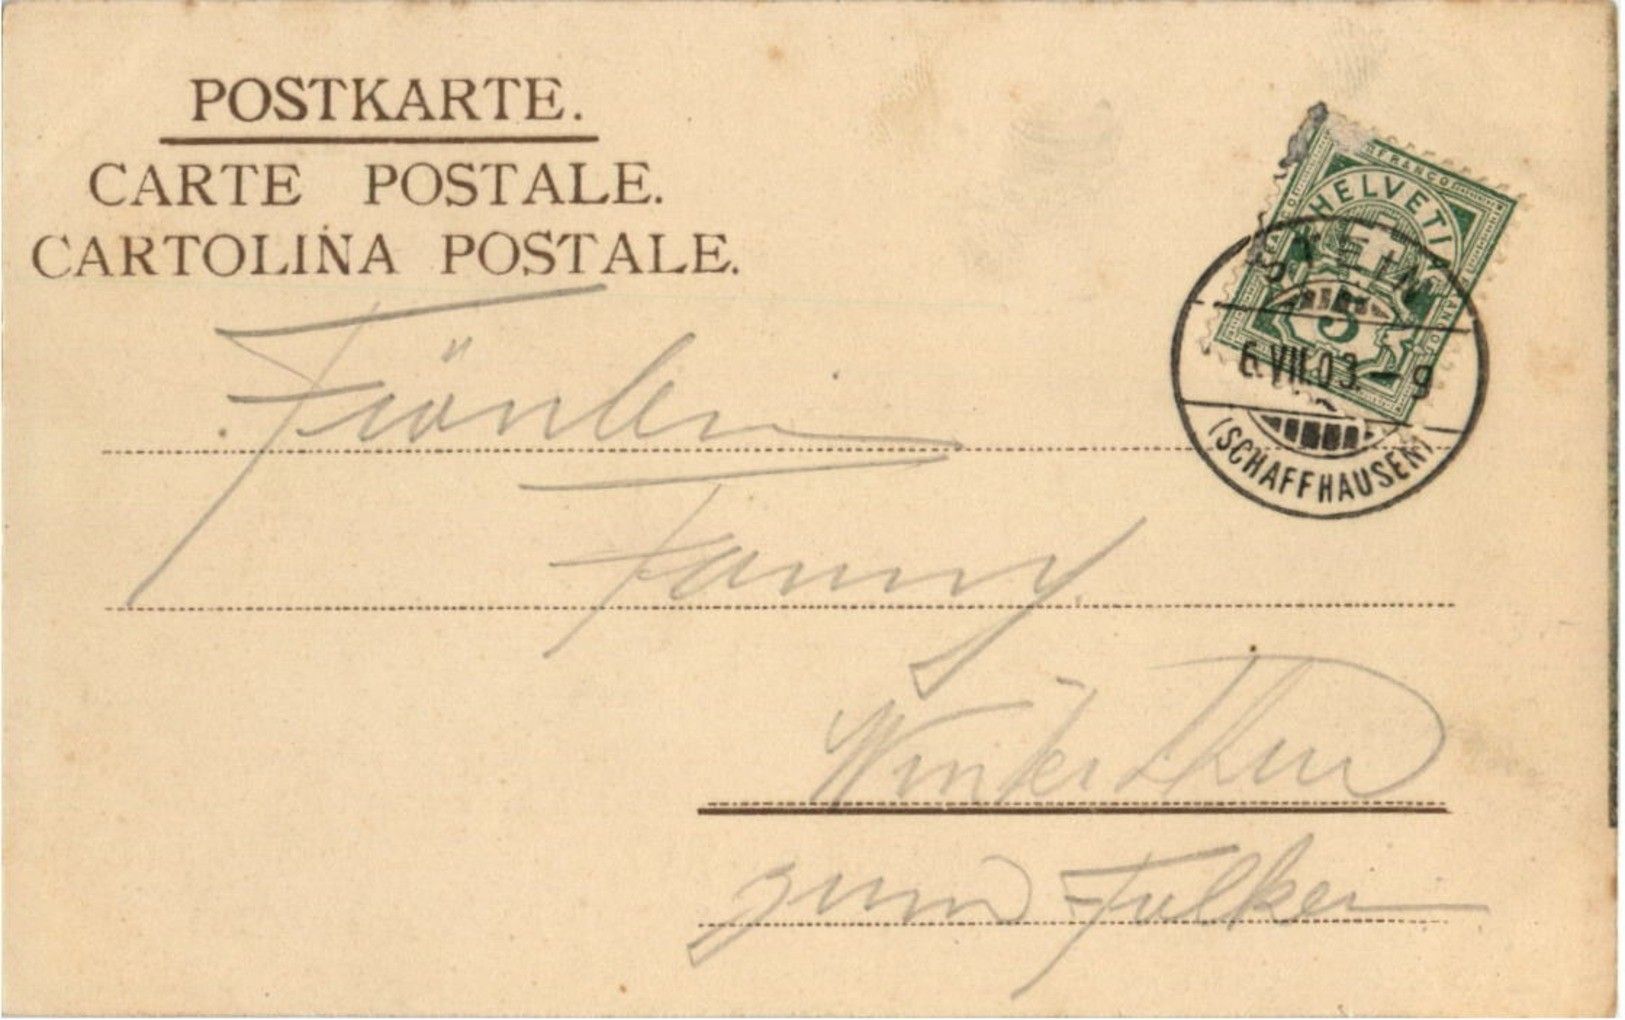 POSTKARTE.
CARTE POSTALE.
CARTOLINA POSTALE.
FRANCO
HELVETIA
5
6.VII.03.-9
(SCHAFFHAUSEN)
Fräulein
Fanny.
Winterthur
zum Falken